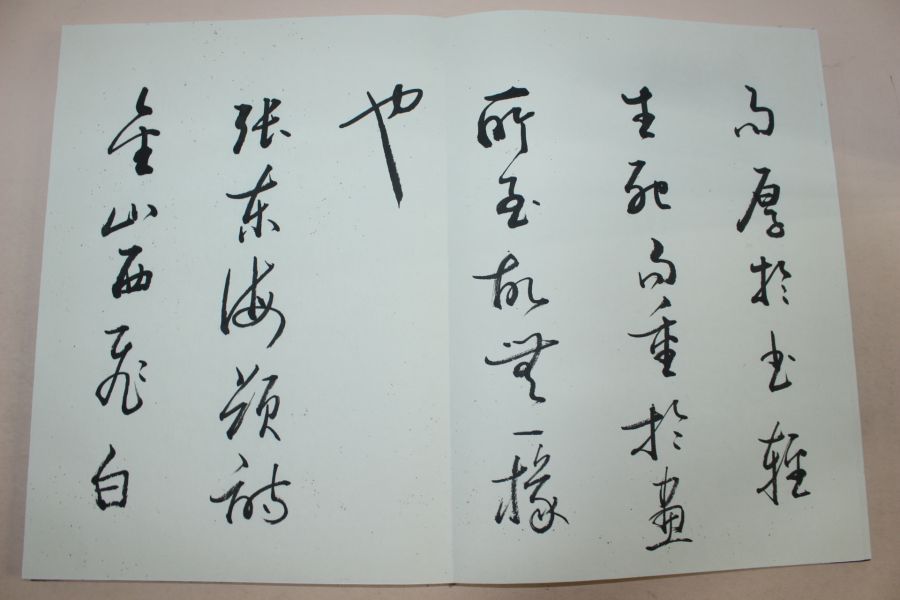 而厚於書輕
生死而重於畫
所至故無一椽
也
張東海題詩
金山西飛白